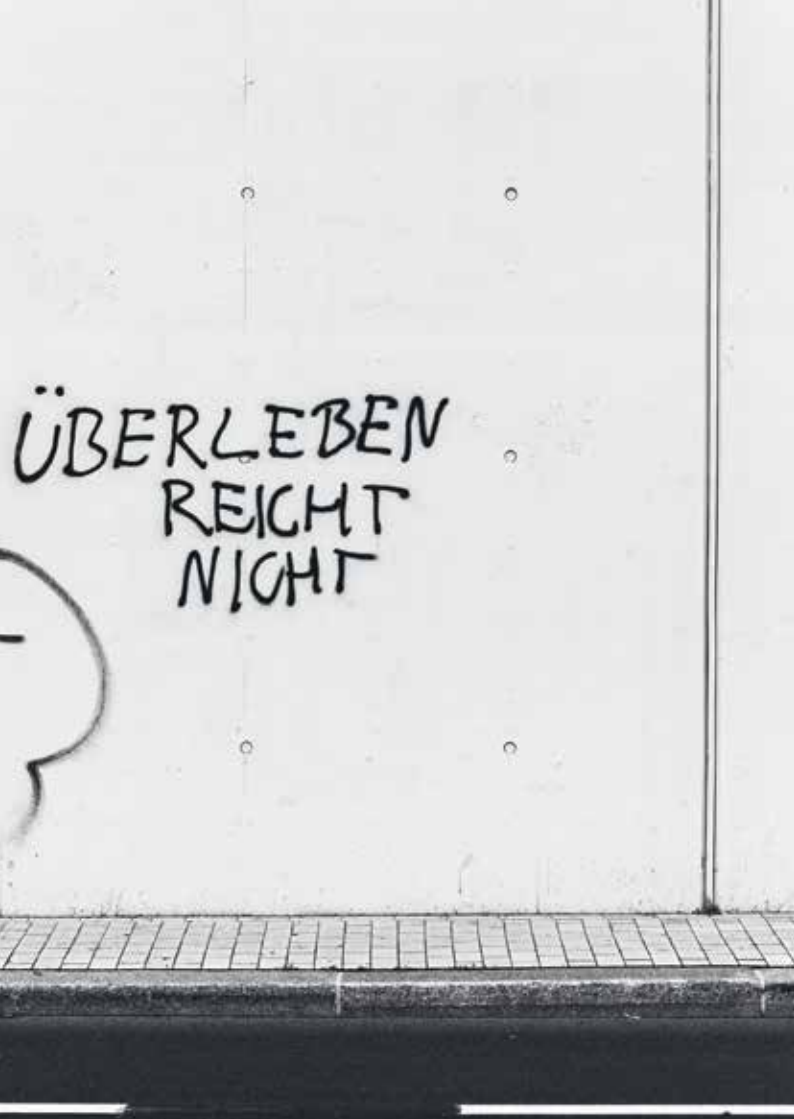 ÜBERLEBEN
REICHT
NICHT